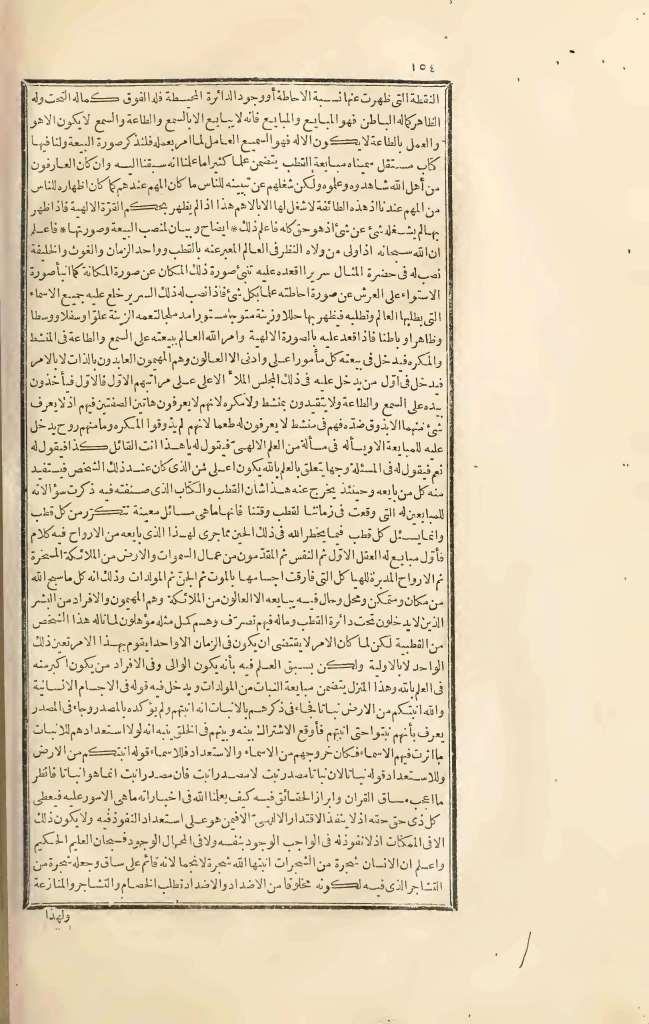 ١٥٤
النقطة التى ظهرت عنها نسبة الاحاطة أو وجود الدائرة المحيطة فله الفوق كماله التحت وله
الظاهر كماله الباطن فهو المبايع والمبايع فأنه لا يبايع الا بالسمع والطاعة والسمع لا يكون الا هو
والعمل بالطاعة لا يكون الا له فهو السميع العامل لما امر بعمله فلنذكر صورة البيعة ولنا فيها
كتاب مستقل سميناه مبايعة القطب يتضمن علما كثيرا ما علمنا انه سبقنا اليه وان كان العارفون
من أهل الله شاهدوه وعلموه ولكن شغلهم عن تبيينه للناس ما كان المهم عندهم كما كان اظهاره للناس
من المهم عندنا اذ هذه الطائفة لا شغل لها الا بالاهم هذا اذ الم يظهر بحكم القوة الالهية فاذا ظهر
بها لم يشغله شئ عن شئ اذ هو حق كله فاعلم ذلك * ايضاح وبيان لمنصب البيعة وصورتها * فاعلم
ان الله سبحانه اذا ولى من ولاه النظر فى العالم المعبر عنه بالقطب وواحد الزمان والغوث والخليفة
نصب له فى حضرة المثال سريرا اقعده عليه تنبئ صورة ذلك المكان عن صورة المكانة كما انبأ صورة
الاستواء على العرش عن صورة احاطته علما بكل شئ فاذا نصب له ذلك السرير خلع عليه جميع الاسماء
التى يطلبها العالم وتطلبه فيظهر بها حللا وزينة متوجا مسوّرا مدملجا لتعمه الزينة علوا وسفلا ووسطا
وظاهرا وباطنا فاذا قعد عليه بالصورة الالهية وامر الله العالم ببيعته على السمع والطاعة فى المنشط
والمكره فيدخل فى بيعته كل مأمور اعلى وادنى الا العالون وهم المهيمون العابدون بالذات لا بالامر
فيدخل فى اوّل من يدخل عليه فى ذلك المجلس الملأ الاعلى على مراتبهم الاوّل فالاوّل فيأخذون
بيده على السمع والطاعة ولا يتقيدون بمنشط ولا مكره لانهم لا يعرفون هاتين الصفتين فيهم اذ لا يعرف
شئ منهما الا بذوق ضدّه فهم فى منشط لا يعرفون له طعما لانهم لم يذوقوا المكره وما منهم روح يدخل
عليه للمبايعة الا ويسأله فى مسألة من العلم الالهىّ فيقول له يا هذا انت القائل كذا فيقول له
نعم فيقول له فى المسئلة وجها يتعلق بالعلم بالله يكون اعلى من الذى كان عند ذلك الشخص فيستفيد
منه كل من بايعه وحينئذ يخرج عنه هذا شان القطب والكتاب الذى صنفته فيه ذكرت سؤالاته
للمبايعين له التى وقعت فى زماننا لقطب وقتنا فانها ما هى مسائل معينة تتكرّر من كل قطب
وانما يسئل كل قطب فيما يخطر الله فى ذلك الحين مما جرى لهذا الذى بايعه من الارواح فيه كلام
فأوّل مبايع له العقل الاوّل ثم النفس ثم المقدّمون من عمال السموات والارض من الملائكة المسخرة
ثم الارواح المدبرة للهياكل التى فارقت اجسامها بالموت ثم الجن ثم المولدات وذلك انه كل ما سبح الله
من مكان ومتمكن ومحل وحال فيه يبايعه الا العالون من الملائكة وهم المهيمون والافراد من البشر
الذين لا يدخلون تحت دائرة القطب وما له فيهم تصرّف وهم كمل مثله مؤهلون لما ناله هذا الشخص
من القطبية لكن لما كان الامر لا يقتضى ان يكون فى الزمان الا واحد يقوم بهذا الامر تعين ذلك
الواحد لا بالاولية ولكن بسبق العلم فيه بأنه يكون الوالى وفى الافراد من يكون اكبر منه
فى العلم بالله وهذا المنزل يتضمن مبايعة النبات من المولدات ويدخل فيه قوله فى الاجسام الانسانية
والله انبتكم من الارض نباتا فجاء فى ذكرهم بالانبات انه انبتهم ولم يؤكده بالمصدر وجاء فى المصدر
يعرف بأنهم نبتوا حتى انبتهم فأوقع الاشتراك بينه وبينهم فى الخلق ينبه انه لولا استعدادهم للانبات
ما اثرت فيهم الاسماء فكان خروجهم من الاسماء والاستعداد فللاسماء قوله انبتكم من الارض
وللاستعداد قوله نباتا لان نباتا مصدر نبت لا مصدر انبت فان مصدر انبت انما هو انباتا فانظر
ما اعجب مساق القران وابراز الحقائق فيه كيف يعلمنا الله فى اخباراته ما هى الامور عليه فيعطى
كل ذى حق حقه اذ لا ينفذ الاقتدار الالهىّ الا فيمن هو على استعداد النفوذ فيه ولا يكون ذلك
الا فى الممكنات اذ لا نفوذ له فى الواجب الوجود بنفسه ولا فى المحال الوجود فسبحان العليم الحكيم
واعلم ان الانسان شجرة من الشجرات انبتها الله شجرة لا نجما لانه قائم على ساق وجعله شجرة من
التشاجر الذى فيه لكونه مخلوقا من الاضداد والاضداد تطلب الخصام والتشاجر والمنازعة
ولهذا